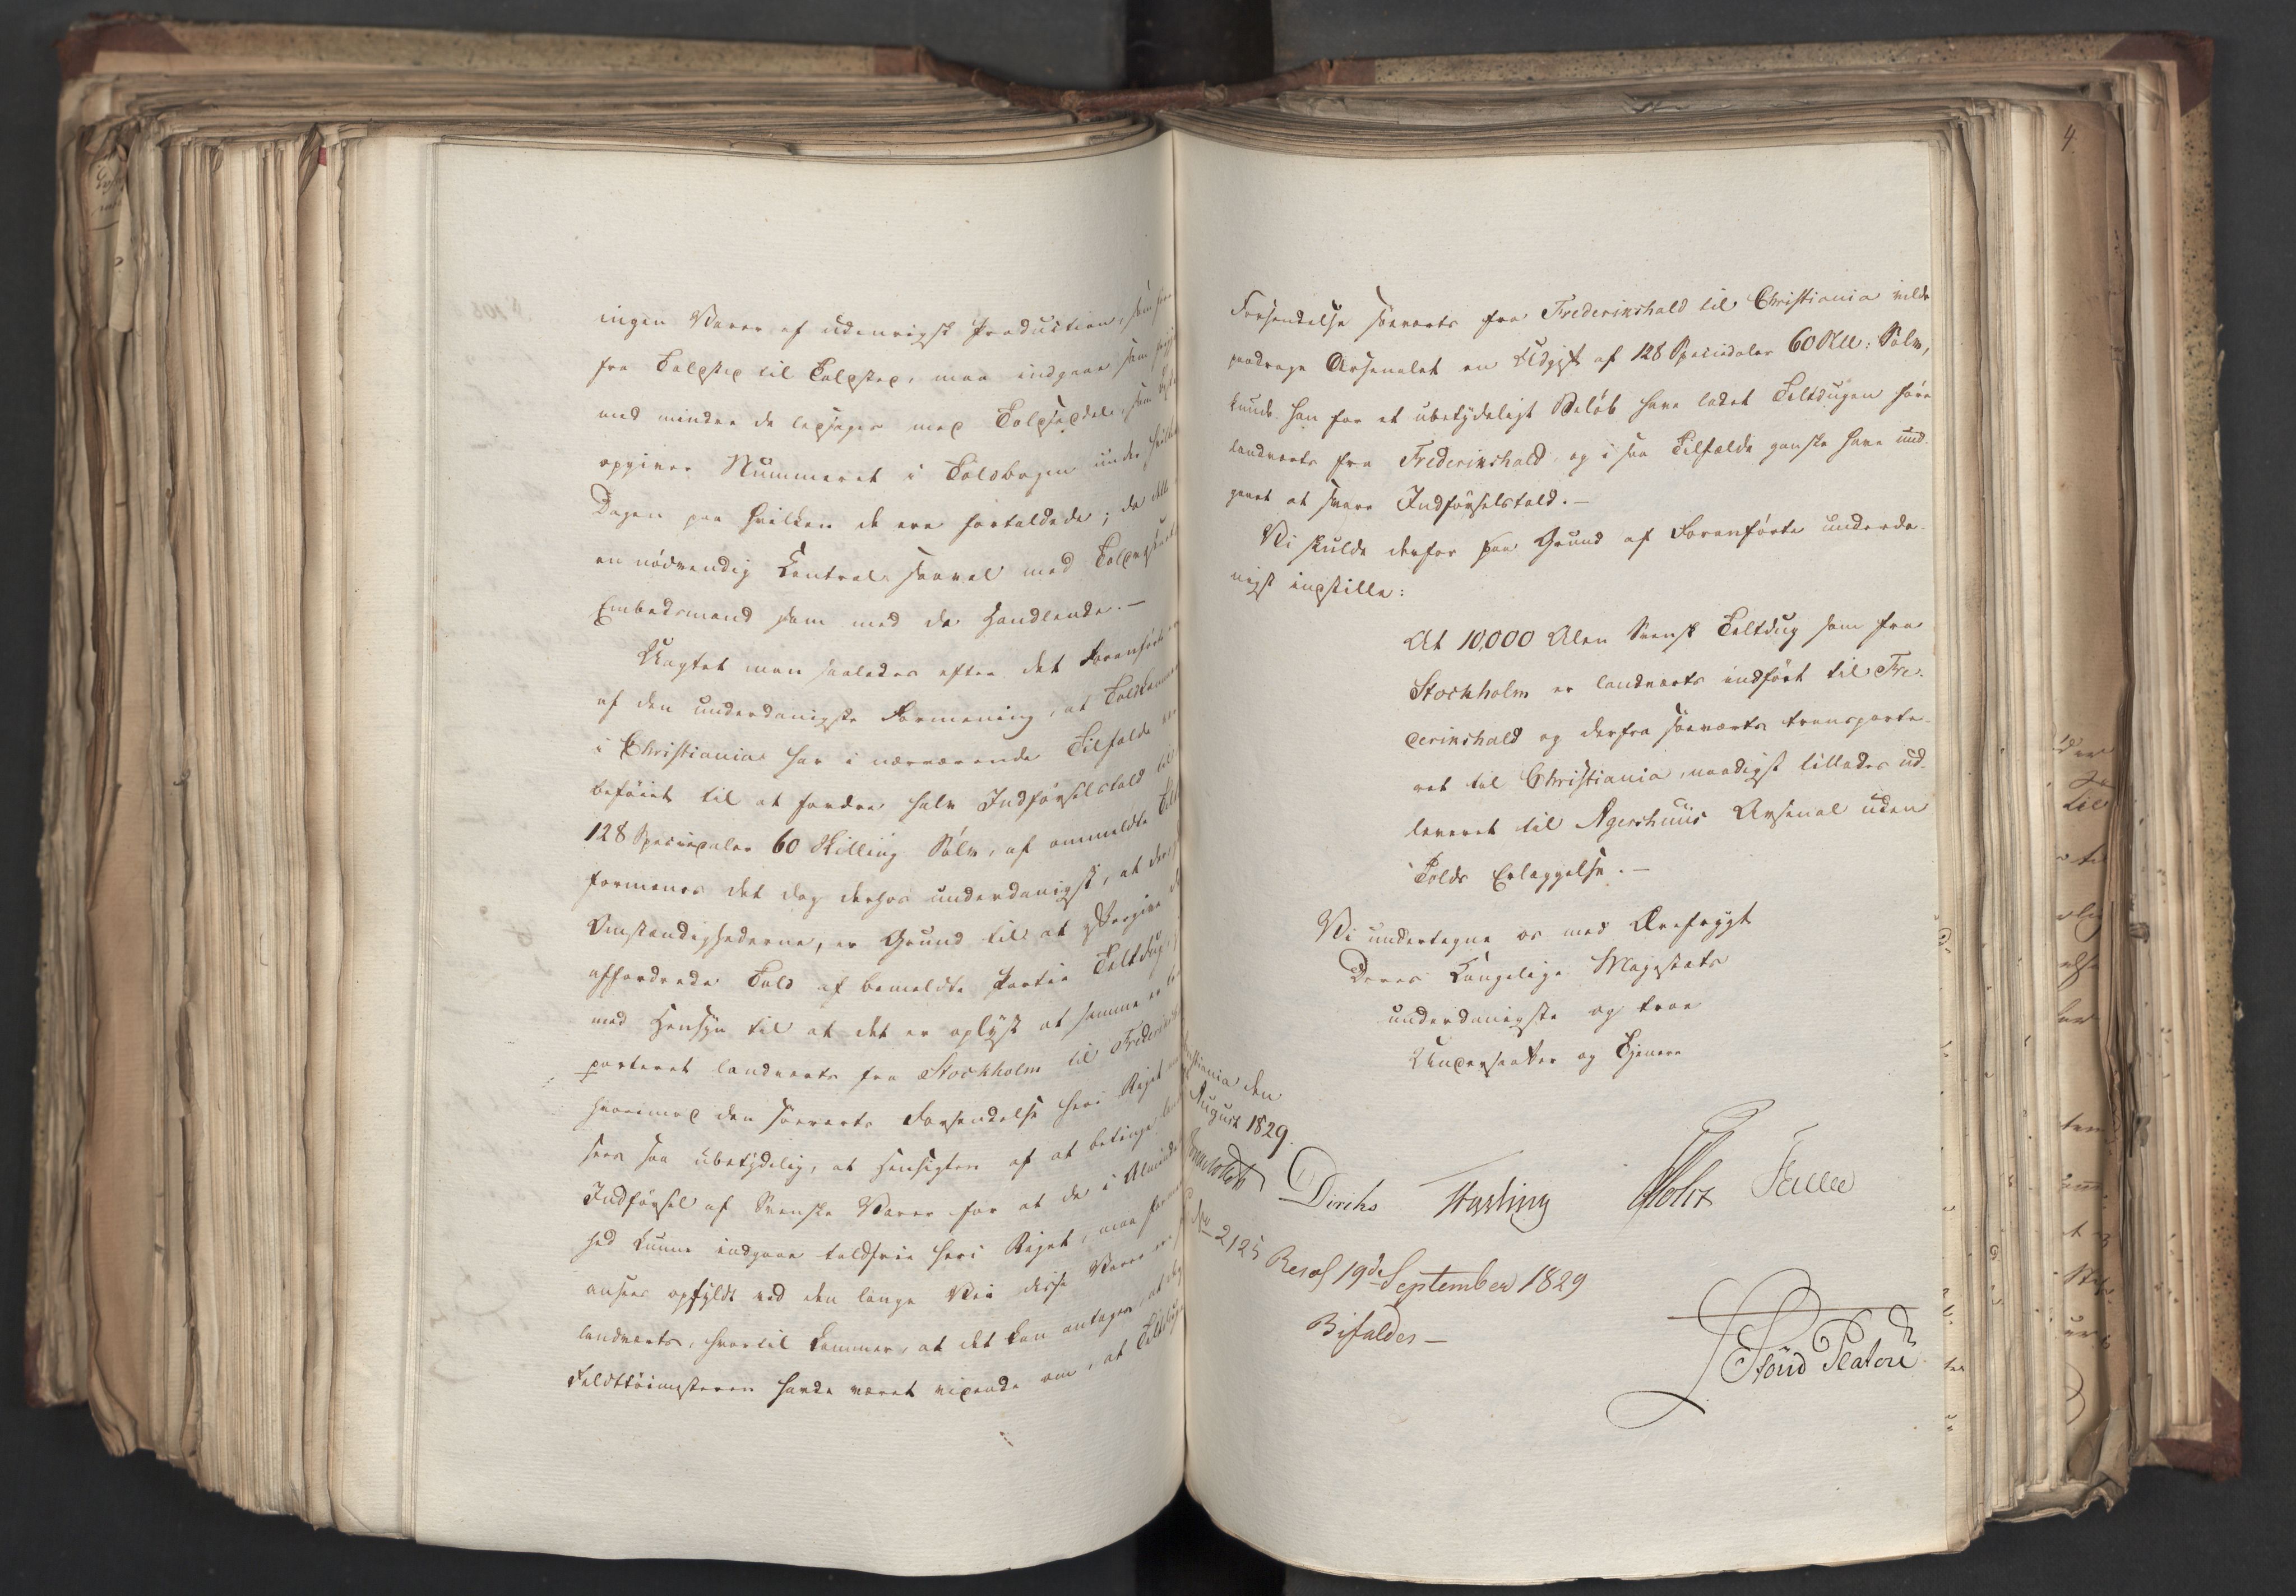 ingen Varer af udenrigsk Production, som
fra Toldsted til Toldsted, maa indgaae som
med mindre de ledsages med Toldseddel, som
opgiver Nummeret i Toldbogen under
Dagen paa hvilken de ere fortoldede; da dette
en nödvendig Control saavel med
Embedsmænd som med de Handlende.—
Uagtet man saaledes efter det Foranförte
af den underdanigste Formening, at
i Christiania har i nærværende Tilfælde
beföiet til at fordre halv Indförselstold til
128 Speciedaler 60 Skilling Sölv, af ommeldte
formenes det dog derhos underdanigst, at der
Omstændighederne, er Grund til at eftergive
affordrede Told af bemeldte Partie Teltdug,
med Hensyn til at det er oplyst at samme er
porteret landværts fra Stockholm til
hvorimod den söeværts Forsendelse her i Riget
sees saa übetydelig, at Hensigten af at betinge
Indförsel af Svenske Varer for at de i
hed kunne indgaae toldfrie her i Riget, maa
ansees opfyldt ved den lange Vei disse Varer
landværts, hvortil kommer, at det kan antages, at
Feldttöimesteren havde været vidende om, at
Forsendelse söeværts fra Frederikshald til Christiania vilde
paadrage Arsenalet en Udgift af 128 Speciedaler 60 Skll: Sölv,
kunde han for et ubetydeligt Belöb have ladet Teltdugen före
landværts fra Frederikshald og i saa Tilfælde ganske have und-
gaaet at svare Indförselstold.—
Vi skulde derfor paa Grund af Foranförte underda-
nigst indstille:
At 10,000 Alen Svensk Teltdug som fra
Stockholm er landværts indfört til Fre-
derikshald og derfra söeværts transporte-
ret til Christiania, naadigst tillades ud-
leveret til Agershuus Arsenal uden
Tolds Erlæggelse.—
Vi undertegne os med Ærefrygt
Deres Kongelige Majestæts
underdanigste og troe
Undersaatter og Tjenere
den
August 1829.
Diriks Hasling Holst
2125
Resol 19de September 1829
Bifaldes—
Platou